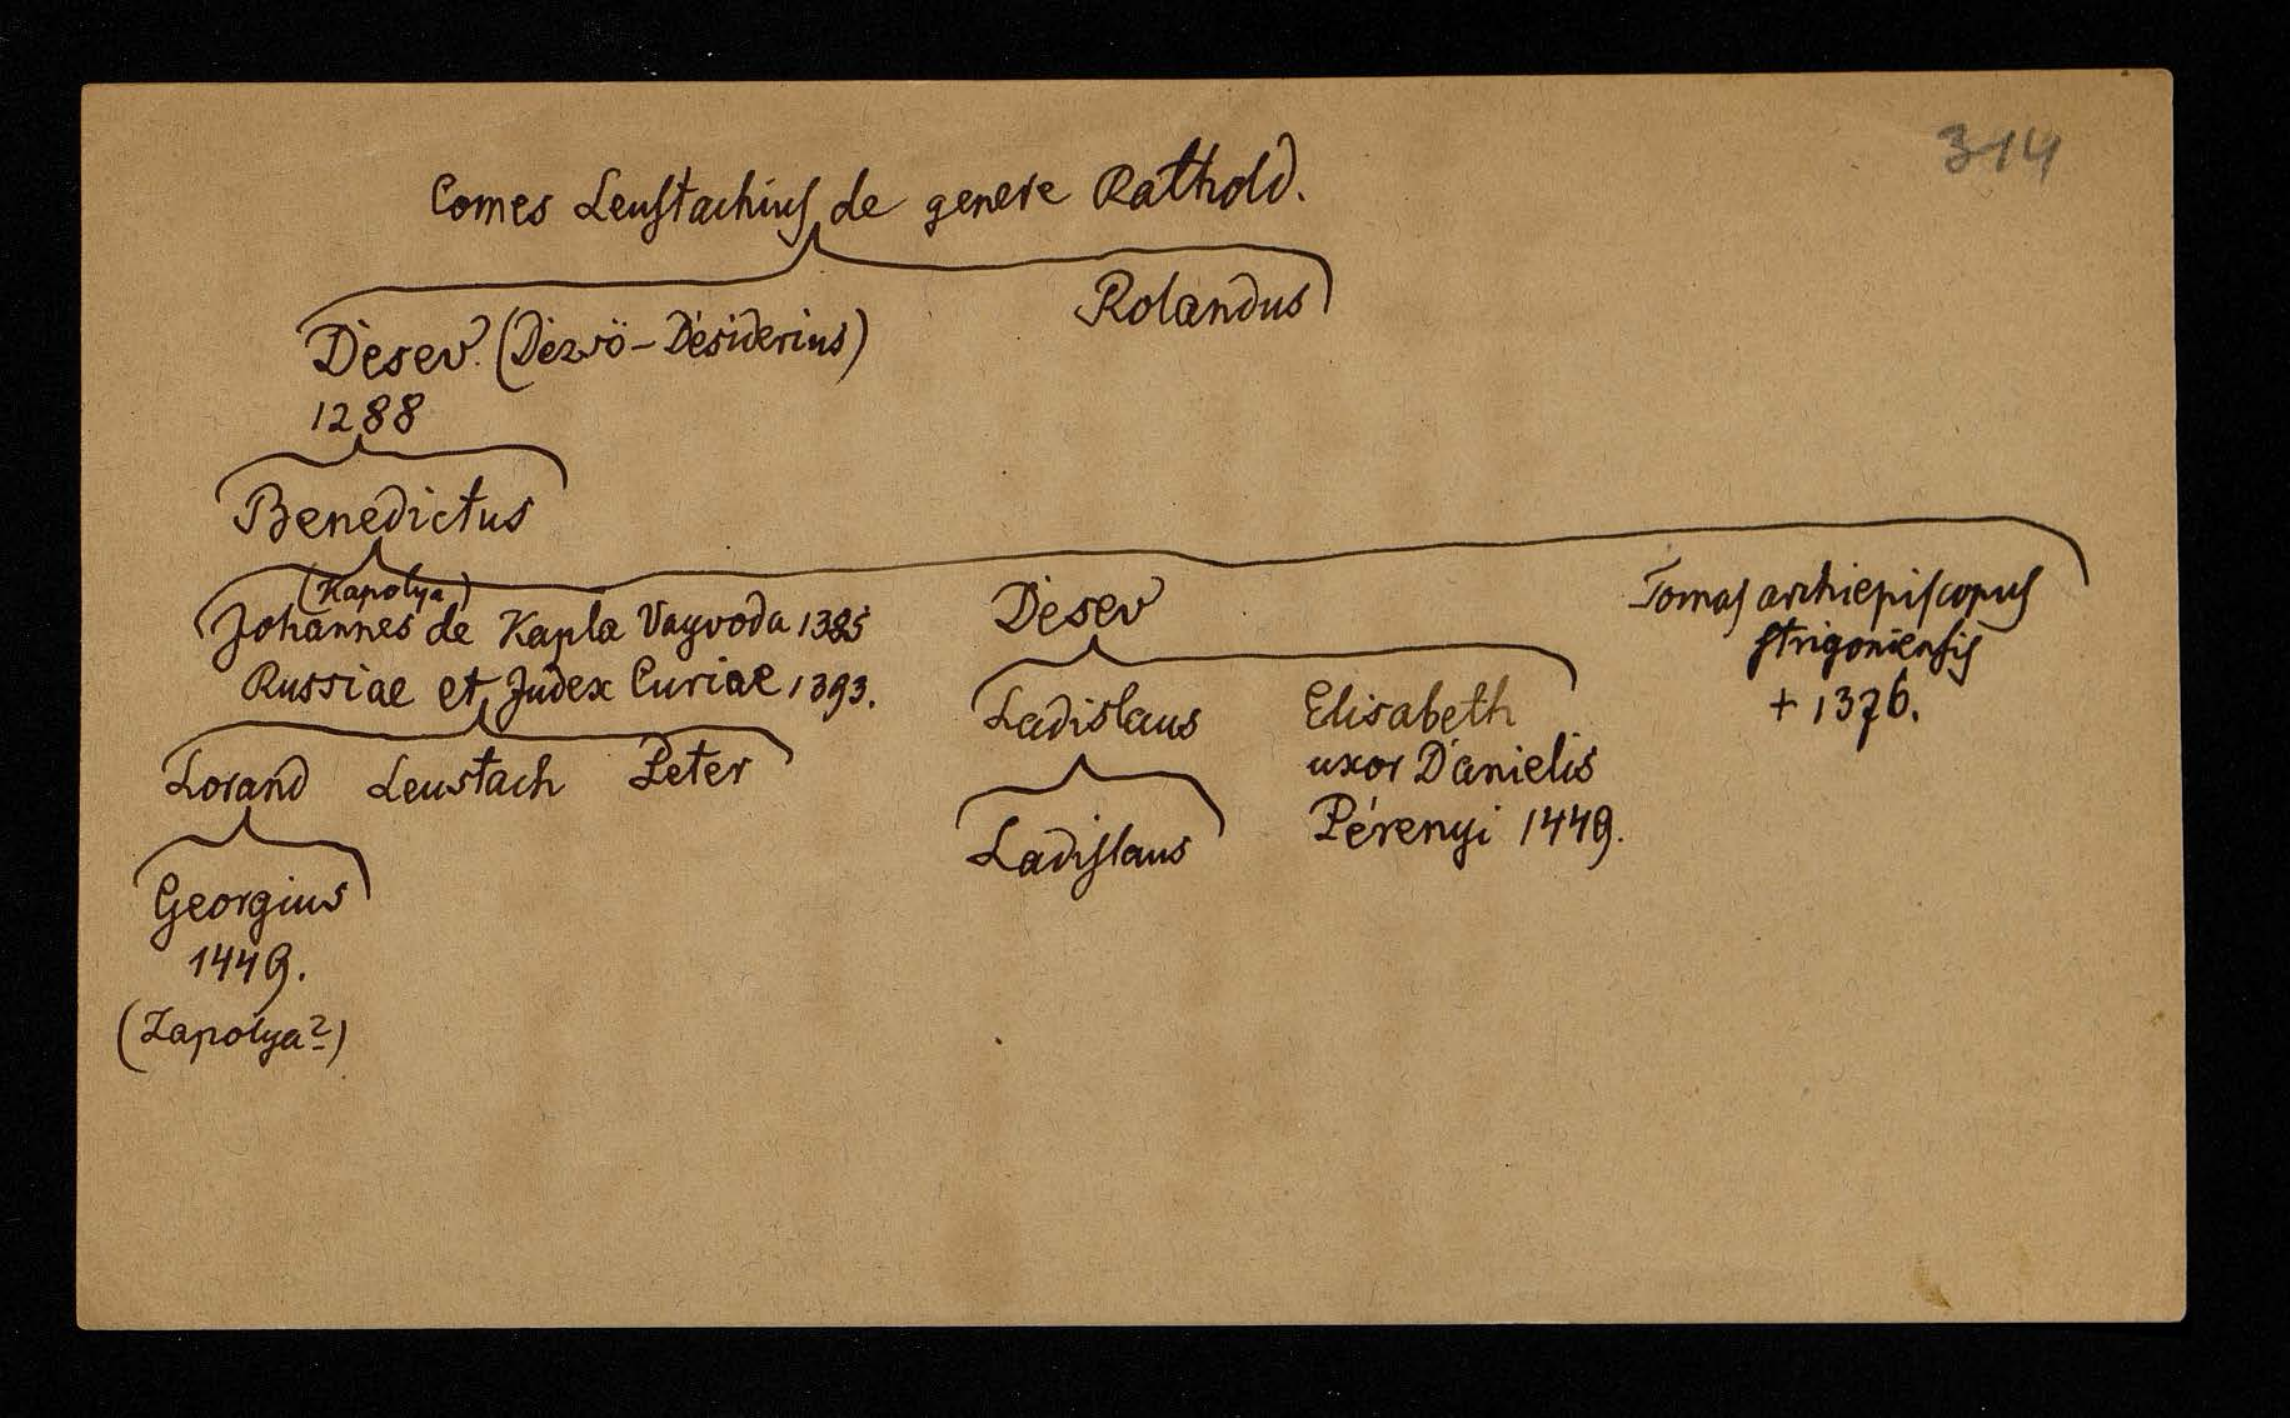 314
Comes Leustachius de genere Rathold.
Rolandus
Désev. (Dézsö-Désiderius)
1288
Benedictus
(Kapolya)
Johannes de Kapla Vayvoda 1385
Russiae et Judex Curiae 1393.
Désev
Tomas archiepiscopus
strigoniensis
+ 1376.
Lorand Leustach Peter
Ladislaus
Elisabeth
uxor Danielis
Pérenyi 1449.
Ladislaus
Georgius
1449.
(Zapolya?)